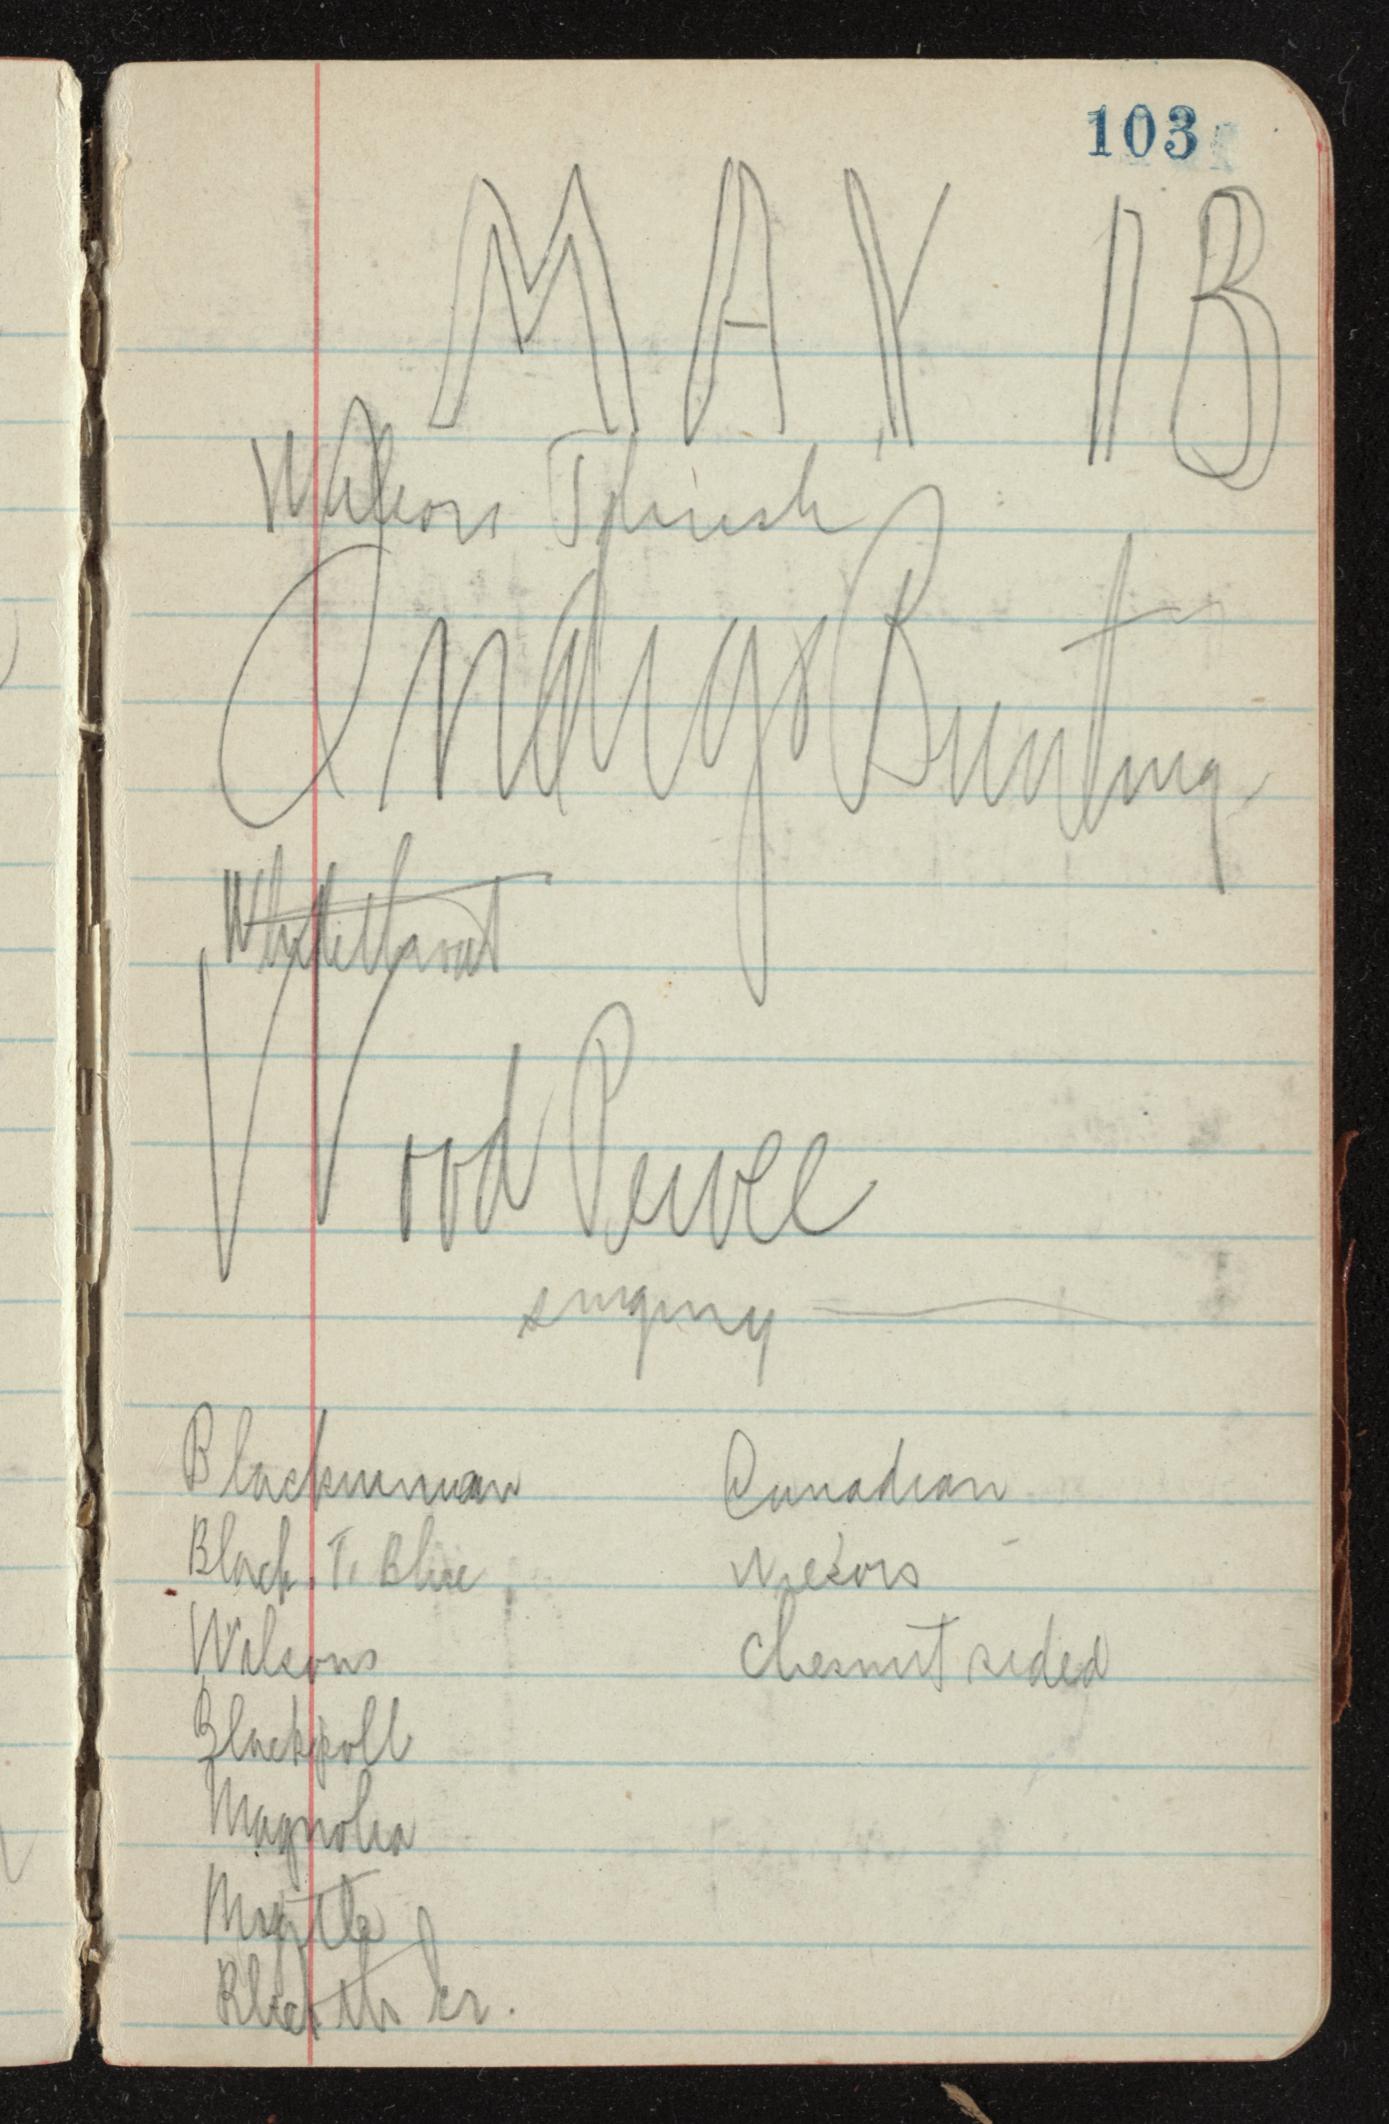 103
MAY 18
Wilsons Thrush
Indigo Bunting
Whitethroat
Wood Pewee
singing
Blackburnian
Canadian
Black T. Blue
Wilsons
Chesnut sided
Blackpoll
Magnolia
Myrtle
Black th. Gr.